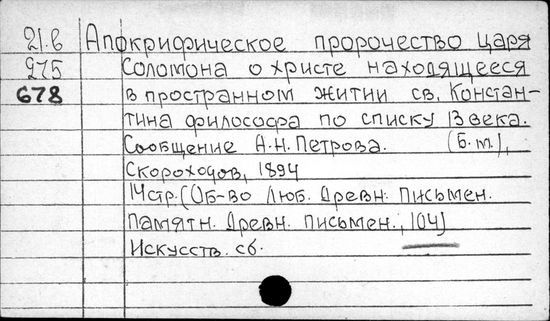 21.6 Апокрифическое пророчество царя
275 Соломона о христе находящееся
678 в пространном житии св. Констан-
тина философа по списку 13 века.
Сообщение А.Н. Петрова. (б.м.),
Скороходов, 1894
14стр. (Об-во Люб. Древн. Письмен.
Памятн. Древн. Письмен., 104)
Искусств. сб.